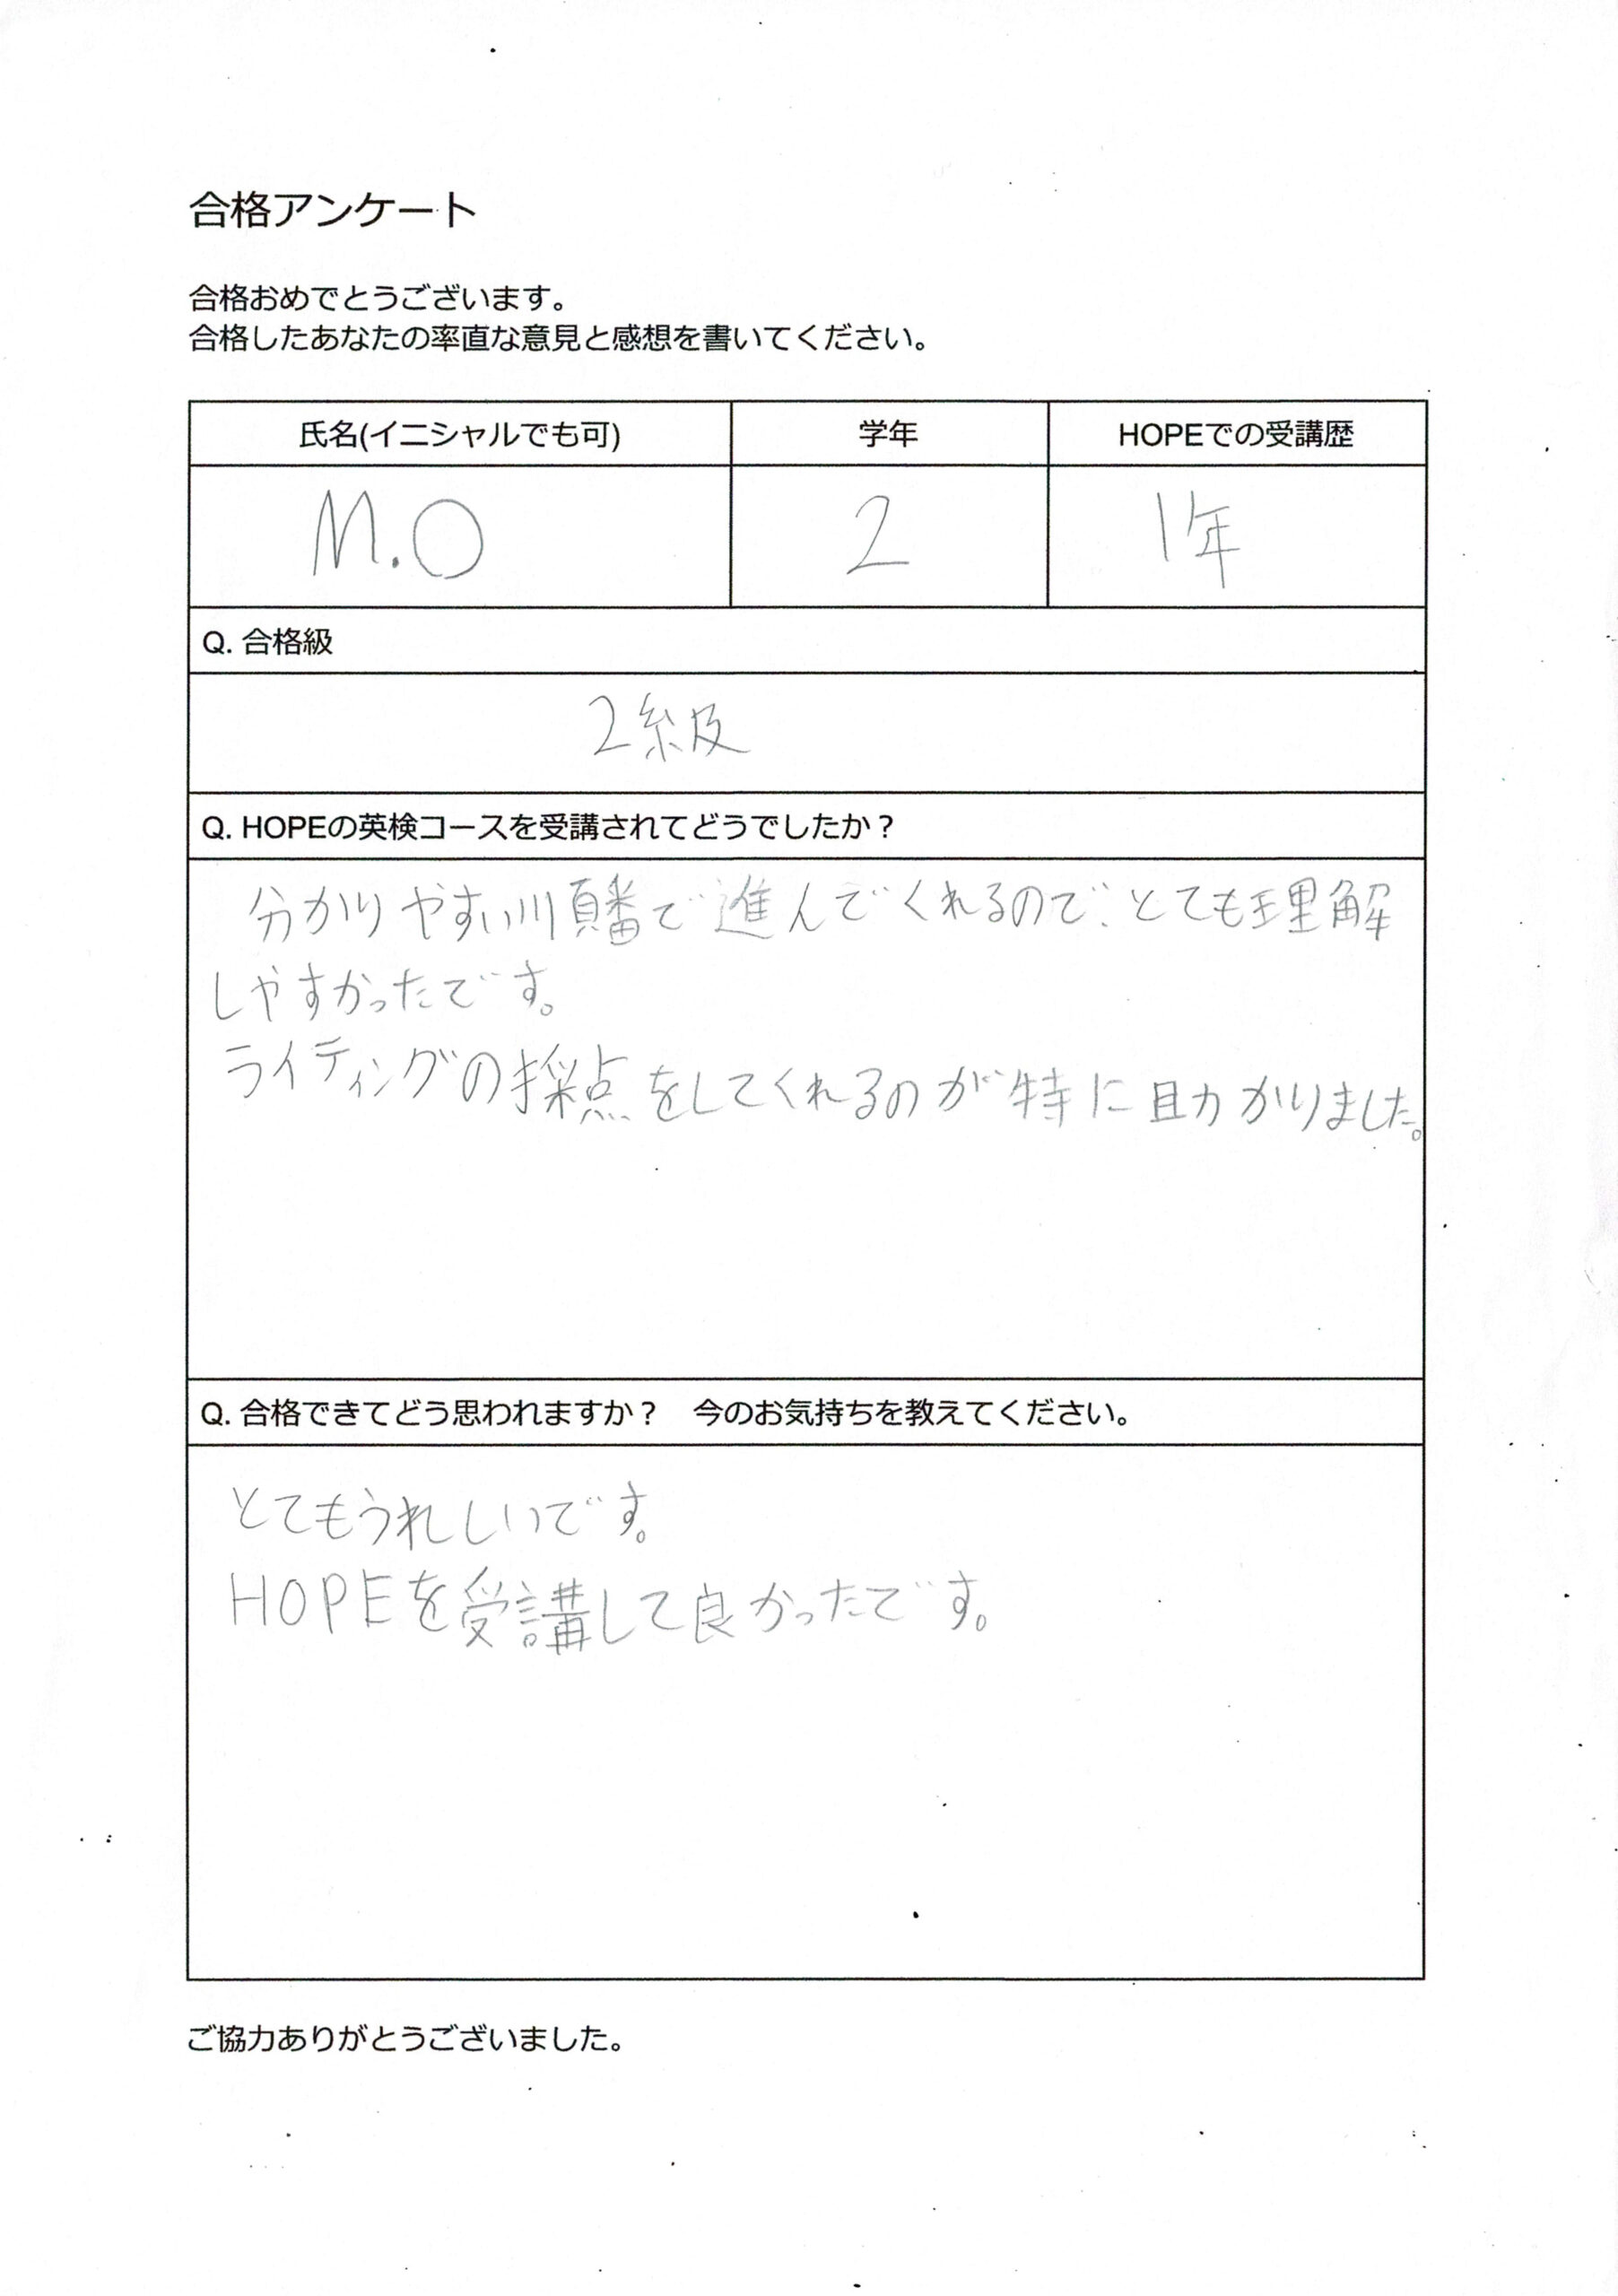 合格アンケート
合格おめでとうございます。
合格したあなたの率直な意見と感想を書いてください。
氏名(イニシャルでも可) 学年 HOPEでの受講歴
M.O 2 1年
Q. 合格級
2級
Q. HOPEの英検コースを受講されてどうでしたか？
分かりやすい順番で進んでくれるので、とても理解
しやすかったです。
ライティングの採点をしてくれるのが特に助かりました。
Q. 合格できてどう思われますか？　今のお気持ちを教えてください。
とてもうれしいです。
HOPEを受講して良かったです。
ご協力ありがとうございました。